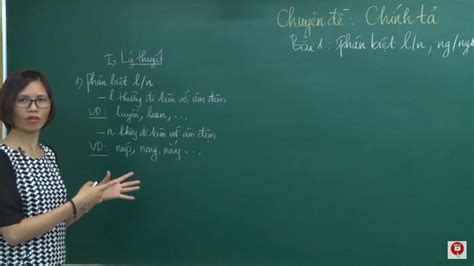 Chuyên đề: Chính tả
Bài 1: phân biệt l/n, ng/ngh
I, Lý thuyết
1) phân biệt l/n
- l thường đi kèm với âm đệm
VD: luyến, loan, ...
- n không đi kèm với âm đệm
VD: nơ, nang, nắng, ...